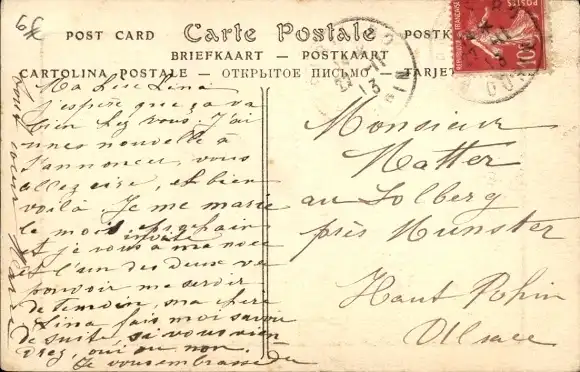 6f
POST CARD
Carte Postale
POSTK
BRIEFKAART — POSTKAART
CARTOLINA POSTALE — ОТКРЫТОЕ ПИСЬМО — TARJET
10
POSTES
Ma Lina
j'espère que ça va
bien chez vous. J'ai
unes nouvelle à
t'annoncer, vous
allez rire, et bien
voilà. Je me marie
le mois prochain
et je vous invite à ma noce
et l'un des deux va
pouvoir me servir
de temoin, ma chère
Lina fais moi savoir
de suite, si vous vien
drez, oui ou non.
Je vous embrasse
Monsieur
Matter
au Solberg
près Munster
Haut Rhin
Alsace